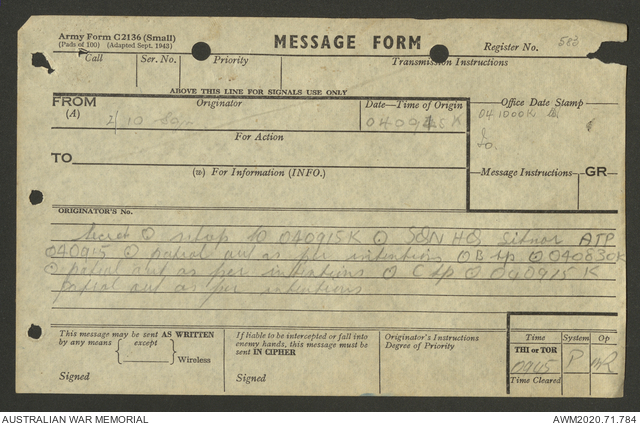 Army Form C2136 (Small)
(Pads of 100) (Adapted Sept. 1943)
MESSAGE FORM
Register No. 583
Call Ser. No. Priority Transmission Instructions
ABOVE THIS LINE FOR SIGNALS USE ONLY
FROM Originator Date—Time of Origin Office Date Stamp
(A) 2/10 040945K 041000K
For Action
TO
(B) For Information (INFO.)
Message Instructions GR
ORIGINATOR'S No.
Secret O sitrep 10 040915K O HQ ATP
040915 O patrol out as per intentions O B O 040830K
O patrol out as per intentions O C O 040915K
patrol out as per intentions
This message may be sent AS WRITTEN
by any means except
Wireless
Signed
If liable to be intercepted or fall into
enemy hands, this message must be
sent IN CIPHER
Signed
Originator's Instructions
Degree of Priority
Time System Op
THI or TOR
0945 P
Time Cleared
AUSTRALIAN WAR MEMORIAL AWM2020.71.784